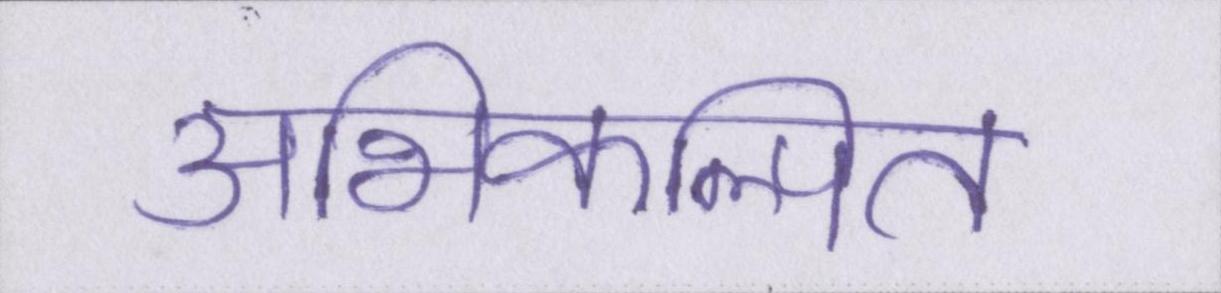 अभिकल्पित